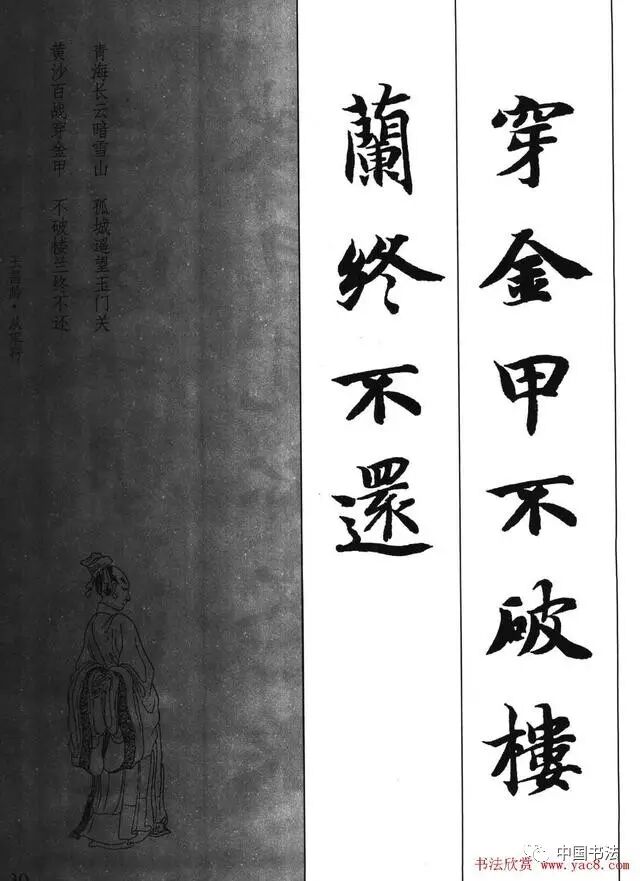 穿金甲不破樓
蘭終不還
青海长云暗雪山 孤城遥望玉门关
黄沙百战穿金甲 不破楼兰终不还
王昌龄·从军行
30
中国书法
书法欣赏 www.yac8.com